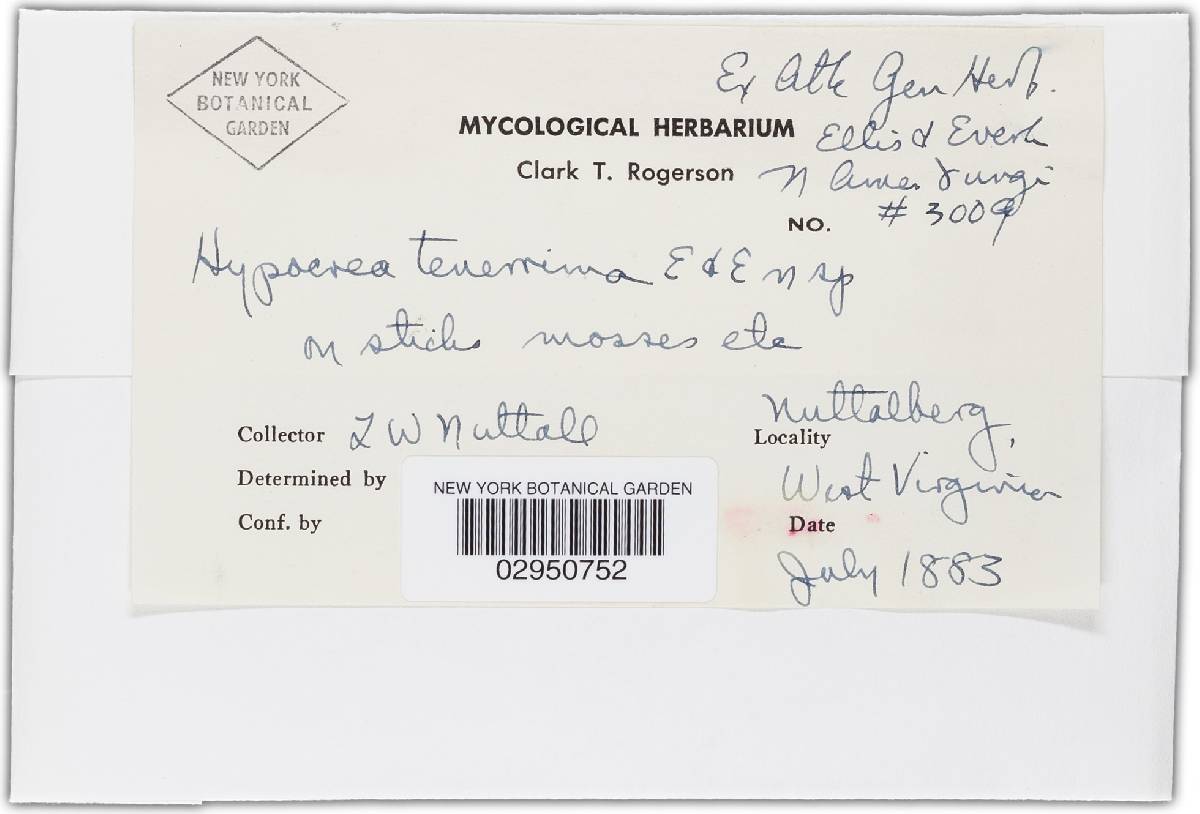 NEW YORK
BOTANICAL
GARDEN
Ex Atk Gen Herb.
MYCOLOGICAL HERBARIUM
Ellis & Everh
Clark T. Rogerson
N Amer Fungi
NO. # 3009
Hypocrea tenerrima E & E n sp
on sticks mosses etc
Collector L W Nuttall
Nuttalberg,
Locality
Determined by
West Virginia
Conf. by
Date
July 1883
NEW YORK BOTANICAL GARDEN
02950752